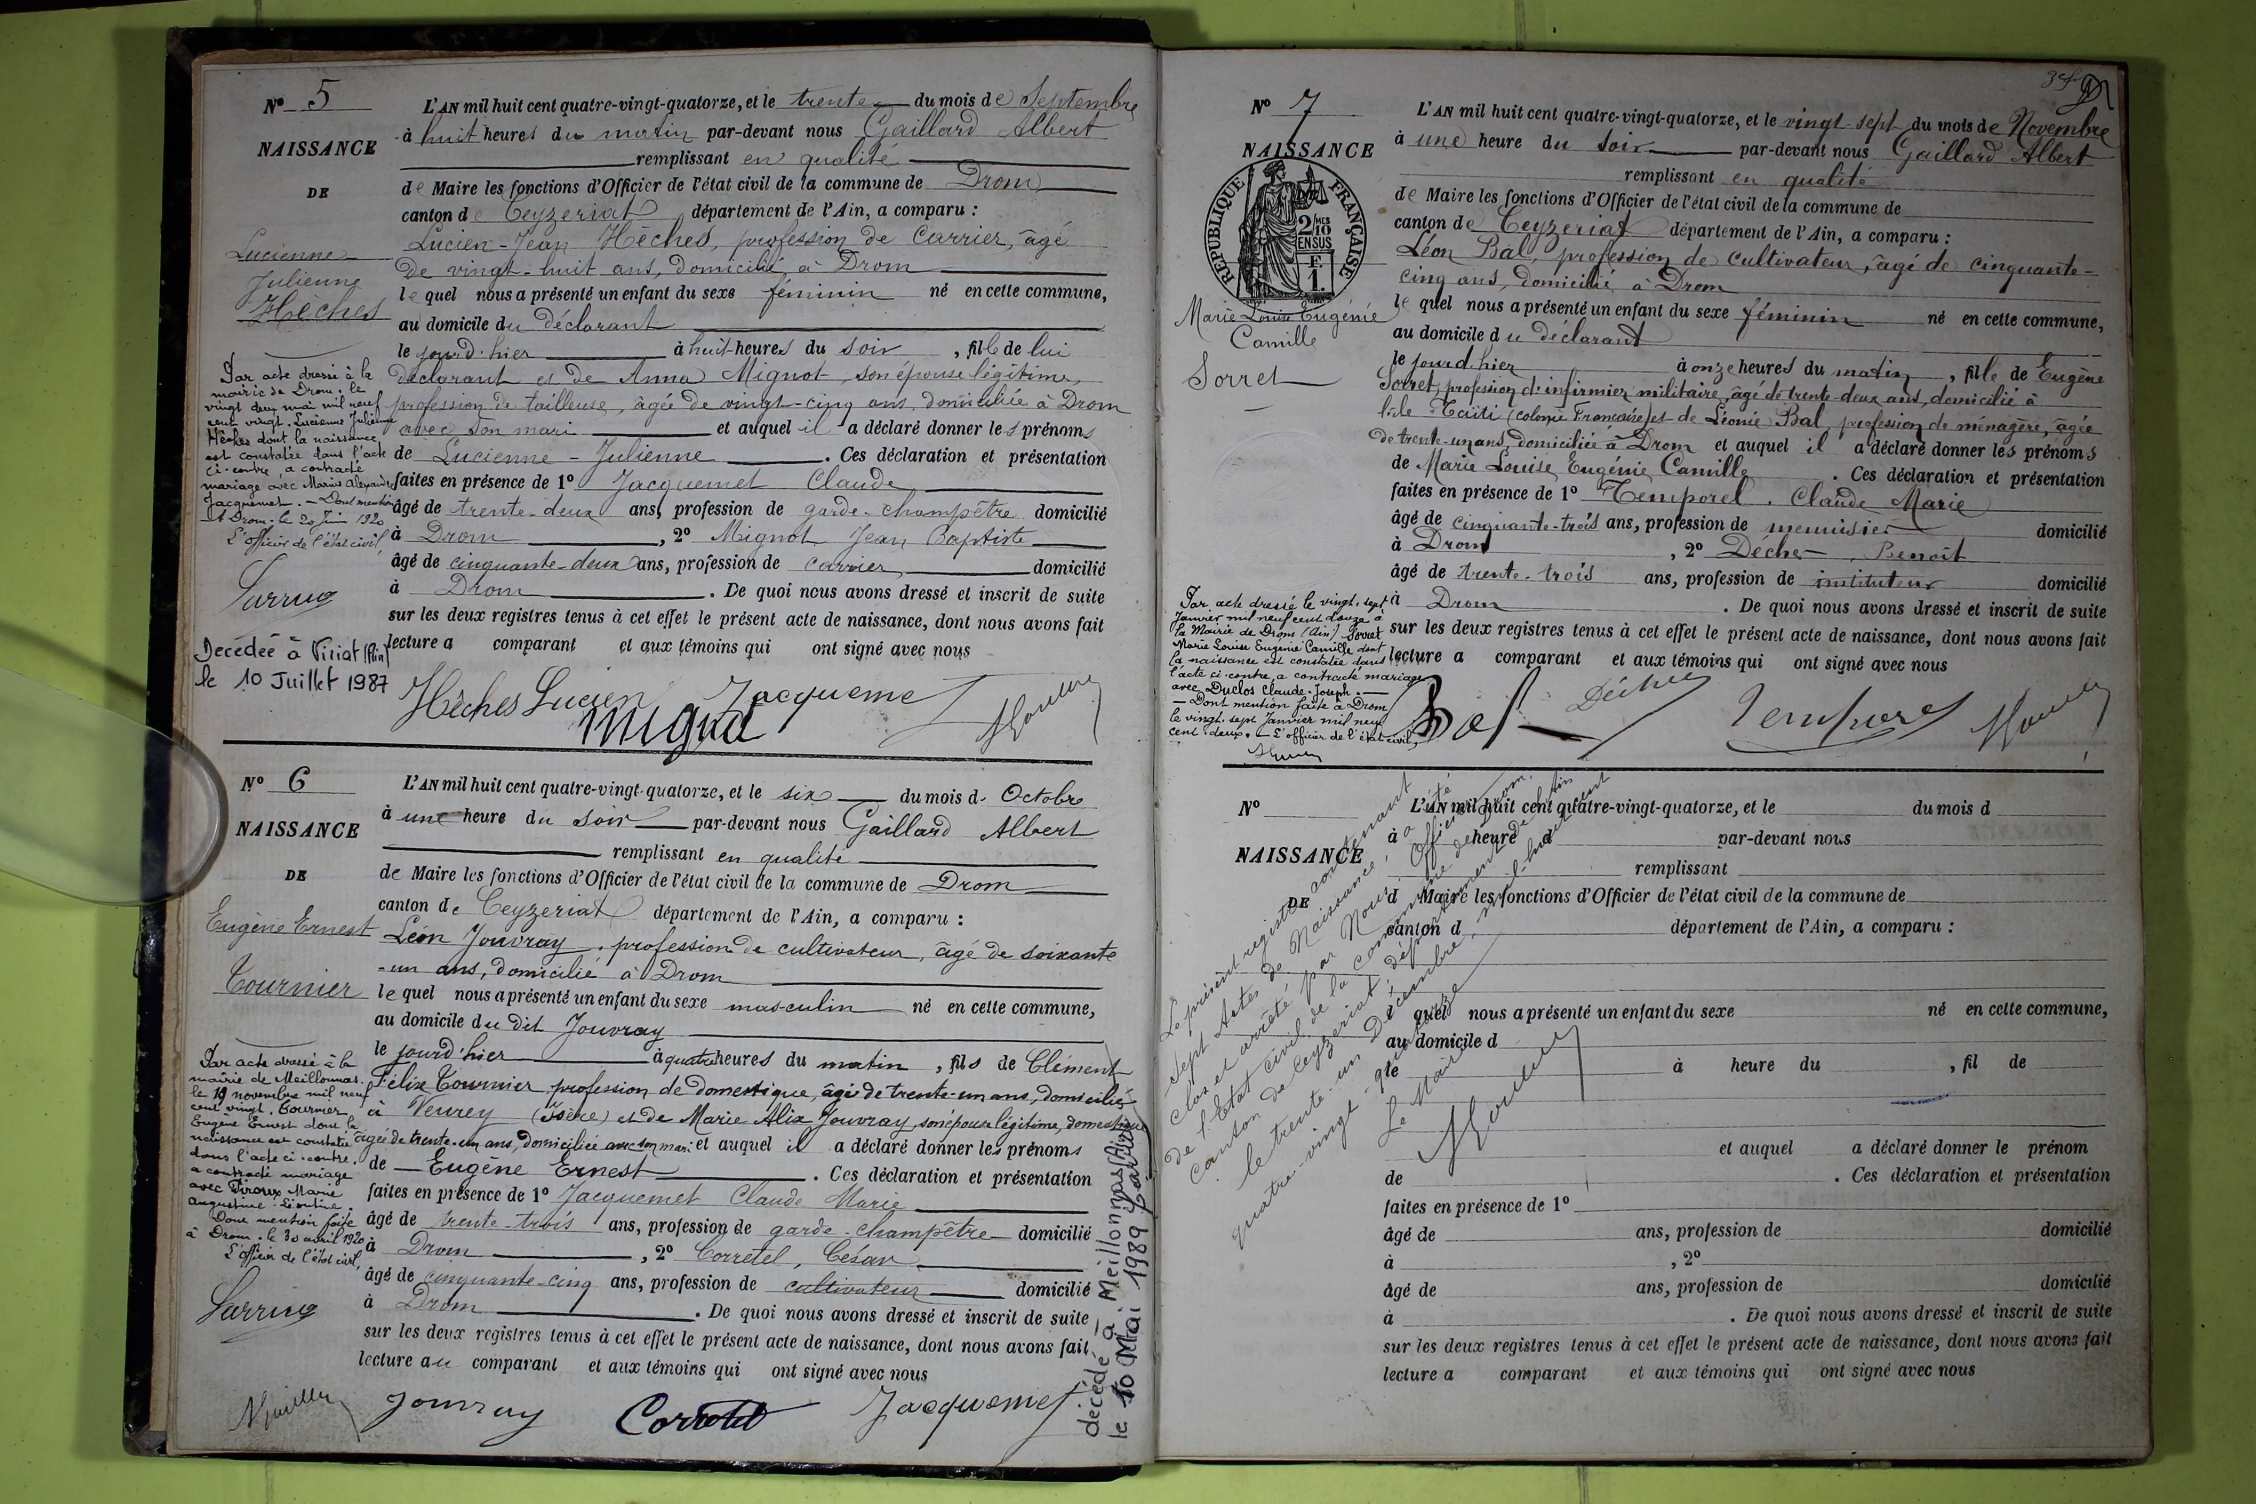 N° 5
NAISSANCE
DE
Lucienne
Julienne
Hèches
Par acte dressé à la
mairie de Drom, le
vingt deux mai mil neuf
cent vingt, Lucienne Julienne
Hèches dont la naissance
est constatée dans l'acte
ci-contre, a contracté
mariage avec Marius Alexandre
Jacquemet. — Dont mention
A Drom, le 20 Juin 1920
L'officier de l'état civil,
Décédée à Viriat (Ain)
le 10 Juillet 1987
L'AN mil huit cent quatre-vingt-quatorze, et le trente du mois de Septembre
à huit heures du matin par-devant nous Gaillard Albert
remplissant en qualité
de Maire les fonctions d'Officier de l'état civil de la commune de Drom
canton de Ceyzeriat département de l'Ain, a comparu :
Lucien-Jean Hèches, profession de carrier, âgé
de vingt-huit ans, domicilié à Drom
lequel nous a présenté un enfant du sexe féminin né en cette commune,
au domicile du déclarant
le jourd'hier à huit heures du soir, fille de lui
déclarant et de Anna Mignot, son épouse légitime,
profession de tailleuse, âgée de vingt-cinq ans, domiciliée à Drom
avec son mari et auquel il a déclaré donner les prénoms
de Lucienne - Julienne. Ces déclaration et présentation
faites en présence de 1° Jacquemet Claude
âgé de trente-deux ans, profession de garde-champêtre domicilié
à Drom, 2° Mignot Jean Baptiste
âgé de cinquante-deux ans, profession de carrier domicilié
à Drom. De quoi nous avons dressé et inscrit de suite
sur les deux registres tenus à cet effet le présent acte de naissance, dont nous avons fait
lecture a comparant et aux témoins qui ont signé avec nous
Hèches Lucien Jacquemet
N° 6
NAISSANCE
DE
Eugène Ernest
Tournier
Par acte dressé à la
mairie de Meillonnas,
le 19 novembre mil neuf
cent vingt, Tournier
Eugène Ernest dont la
naissance est constatée
dans l'acte ci-contre,
a contracté mariage
avec Piroux Marie
Augustine Léontine.
Dont mention faite
à Drom, le 30 avril 1920
L'officier de l'état civil,
L'AN mil huit cent quatre-vingt-quatorze, et le six du mois d. Octobre
à une heure du soir par-devant nous Gaillard Albert
remplissant en qualité
de Maire les fonctions d'Officier de l'état civil de la commune de Drom
canton de Ceyzeriat département de l'Ain, a comparu :
Léon Jouvray, profession de cultivateur, âgé de soixante
-un ans, domicilié à Drom
lequel nous a présenté un enfant du sexe masculin né en cette commune,
au domicile du dit Jouvray
le jourd'hier à quatre heures du matin, fils de Clément
Félix Tournier profession de domestique, âgé de trente-un ans, domicilié
à Veurey (Isère) et de Marie Alix Jouvray, son épouse légitime, domestique
âgée de trente-un ans, domiciliée avec son mari et auquel il a déclaré donner les prénoms
de Eugène Ernest. Ces déclaration et présentation
faites en présence de 1° Jacquemet Claude Marie
âgé de trente-trois ans, profession de garde-champêtre domicilié
à Drom, 2° Corretel, César
âgé de cinquante-cinq ans, profession de cultivateur domicilié
à Drom. De quoi nous avons dressé et inscrit de suite
sur les deux registres tenus à cet effet le présent acte de naissance, dont nous avons fait
lecture au comparant et aux témoins qui ont signé avec nous
Jouvray Corretel Jacquemet
décédé à Meillonnas (Ain)
le 10 Mai 1989
N° 7
NAISSANCE
RÉPUBLIQUE FRANÇAISE
2/10
EN SUS
F.
1.
Marie Louise Eugénie
Camille
Sorret
Par acte dressé le vingt-sept
Janvier mil neuf cent douze à
la Mairie de Drom (Ain) Sorret
Marie Louise Eugénie Camille dont
la naissance est constatée dans
l'acte ci-contre, a contracté mariage
avec Duclos Claude-Joseph.
— Dont mention faite à Drom
le vingt-sept Janvier mil neuf
cent deux. — L'officier de l'état civil,
L'AN mil huit cent quatre-vingt-quatorze, et le vingt-sept du mois de Novembre
à une heure du soir par-devant nous Gaillard Albert
remplissant en qualité
de Maire les fonctions d'Officier de l'état civil de la commune de
canton de Ceyzeriat département de l'Ain, a comparu :
Léon Bal, profession de cultivateur, âgé de cinquante-
cinq ans, domicilié à Drom
lequel nous a présenté un enfant du sexe féminin né en cette commune,
au domicile du déclarant
le jourd'hier à onze heures du matin, fille de Eugène
Sorret, profession d'infirmier militaire, âgé de trente-deux ans, domicilié à
l'île Taïti (colonie Française) et de Léonie Bal, profession de ménagère, âgée
de trente-un ans, domiciliée à Drom et auquel il a déclaré donner les prénoms
de Marie Louise Eugénie Camille. Ces déclaration et présentation
faites en présence de 1° Temporel, Claude Marie
âgé de cinquante-trois ans, profession de menuisier domicilié
à Drom, 2° Décher, Benoît
âgé de trente-trois ans, profession de instituteur domicilié
à Drom. De quoi nous avons dressé et inscrit de suite
sur les deux registres tenus à cet effet le présent acte de naissance, dont nous avons fait
lecture a comparant et aux témoins qui ont signé avec nous
Bal Temporel
N°
NAISSANCE
DE
L'AN mil huit cent quatre-vingt-quatorze, et le du mois d
à heure d par-devant nous
remplissant
d Maire les fonctions d'Officier de l'état civil de la commune de
canton d département de l'Ain, a comparu :
quel nous a présenté un enfant du sexe né en cette commune,
au domicile d
le à heure du, fil de
et auquel a déclaré donner le prénom
de. Ces déclaration et présentation
faites en présence de 1°
âgé de ans, profession de domicilié
à, 2°
âgé de ans, profession de domicilié
à. De quoi nous avons dressé et inscrit de suite
sur les deux registres tenus à cet effet le présent acte de naissance, dont nous avons fait
lecture a comparant et aux témoins qui ont signé avec nous
Le présent registre contenant
sept Actes de Naissance, a été
clos et arrêté par Nous Officier
de l'État civil de la commune de Drom,
canton de Ceyzeriat, département de l'Ain
le trente-un Décembre mil-huit-cent
quatre-vingt-quatorze
Le Maire